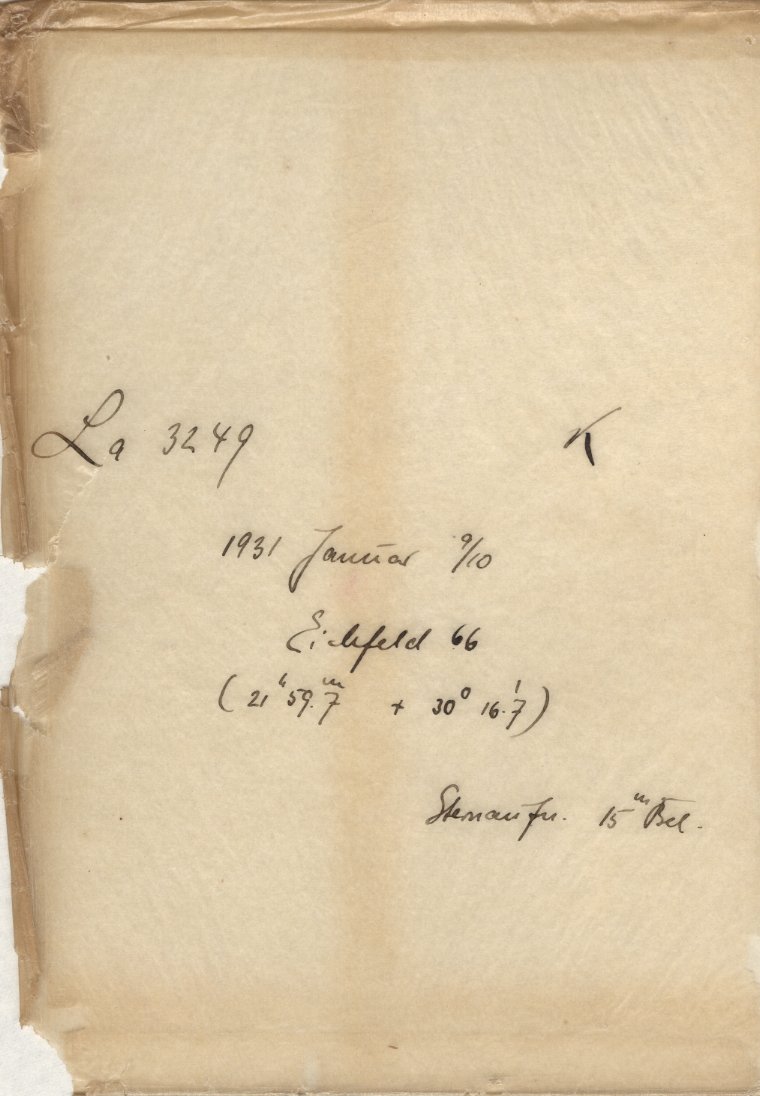 La 3249 K
1931 Januar 9/10
Eichfeld 66
(21ʰ 59.ᵐ7 + 30° 16.'7)
Sternaufn. 15ᵐ Bel.